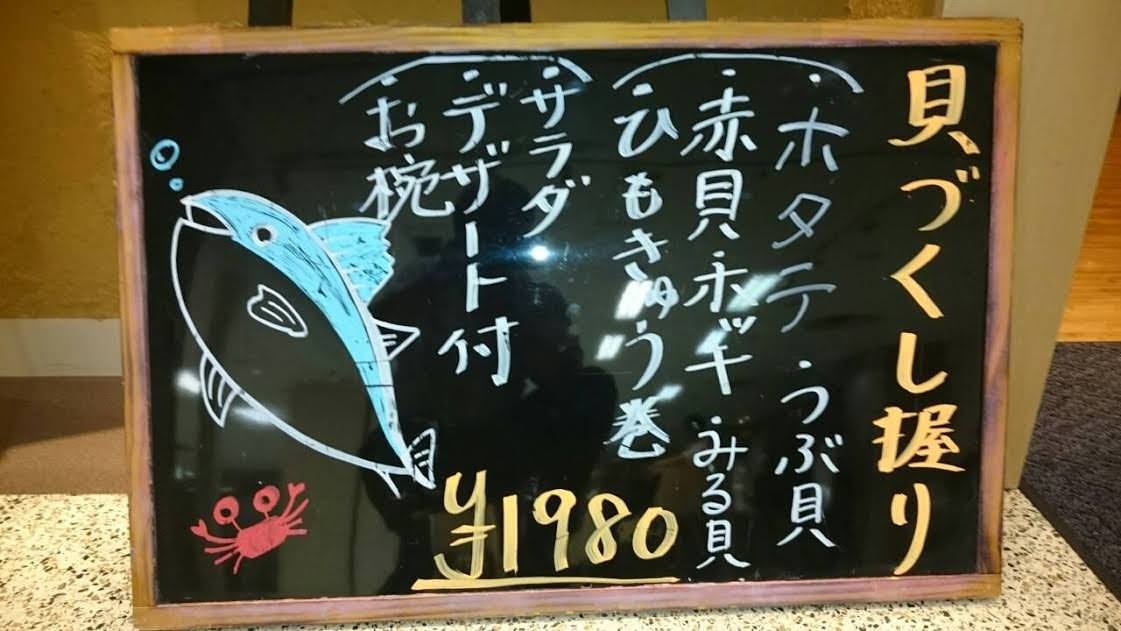 貝づくし握り
・ホタテ・つぶ貝
・赤貝・ホッキ・みる貝
・ひもきゅう巻
・サラダ
・デザート付
・お椀
¥1980